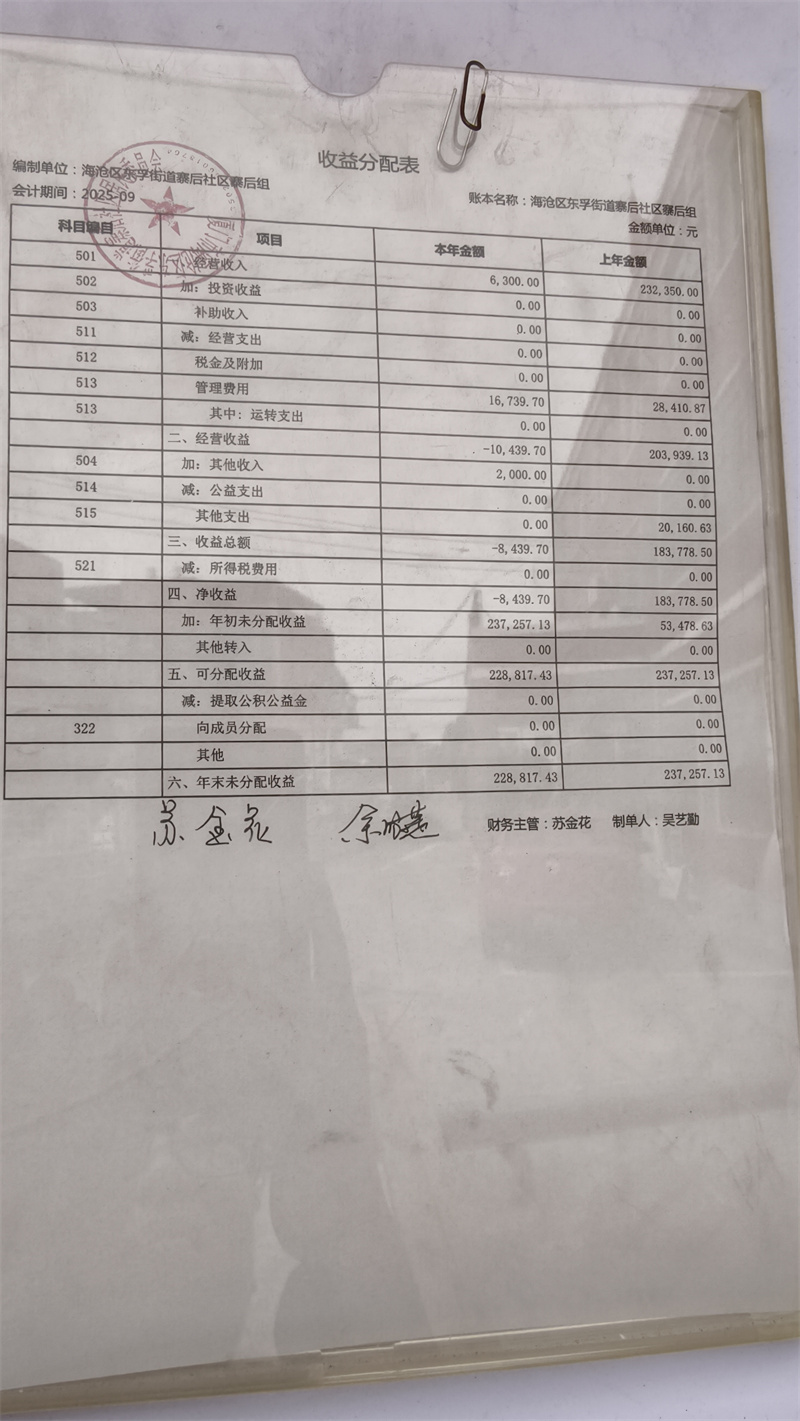 收益分配表
编制单位：海沧区东孚街道寨后社区寨后组
会计期间：2025-09
账本名称：海沧区东孚街道寨后社区寨后组
金额单位：元
科目编目 项目 本年金额 上年金额
501 经营收入 6,300.00 232,350.00
502 加：投资收益 0.00 0.00
503 补助收入 0.00 0.00
511 减：经营支出 0.00 0.00
512 税金及附加 0.00 0.00
513 管理费用 16,739.70 28,410.87
513 其中：运转支出 0.00 0.00
二、经营收益 -10,439.70 203,939.13
504 加：其他收入 2,000.00 0.00
514 减：公益支出 0.00 0.00
515 其他支出 0.00 20,160.63
三、收益总额 -8,439.70 183,778.50
521 减：所得税费用 0.00 0.00
四、净收益 -8,439.70 183,778.50
加：年初未分配收益 237,257.13 53,478.63
其他转入 0.00 0.00
五、可分配收益 228,817.43 237,257.13
减：提取公积公益金 0.00 0.00
322 向成员分配 0.00 0.00
其他 0.00 0.00
六、年末未分配收益 228,817.43 237,257.13
苏金花
财务主管：苏金花 制单人：吴艺勤